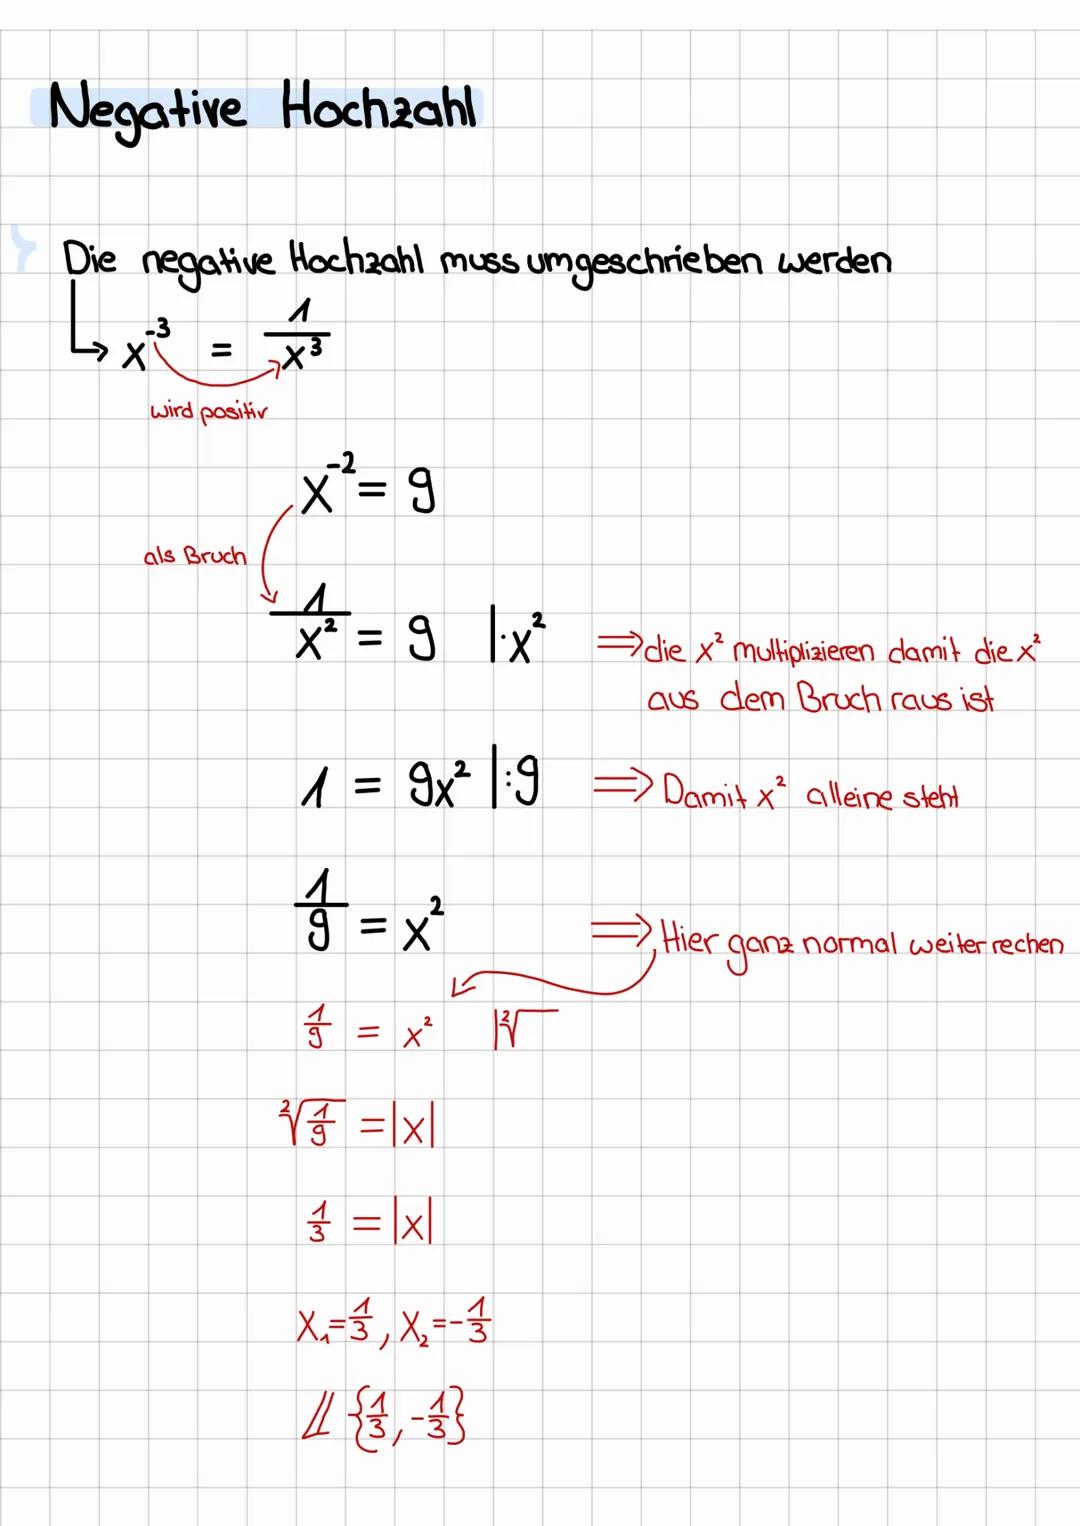 Negative Hochzahl
Die negative Hochzahl muss umgeschrieben werden
x^-3 = 1/x^3
wird positiv
x^-2 = 9
als Bruch
1/x² = 9 |·x² ⇒ die x² multiplizieren damit die x²
aus dem Bruch raus ist
1 = 9x² |:9 ⇒ Damit x² alleine steht
1/9 = x² ⇒ Hier ganz normal weiter rechen
1/9 = x² |²√
²√1/9 = |x|
1/3 = |x|
x₁=1/3, x₂=-1/3
𝕃 {1/3, -1/3}